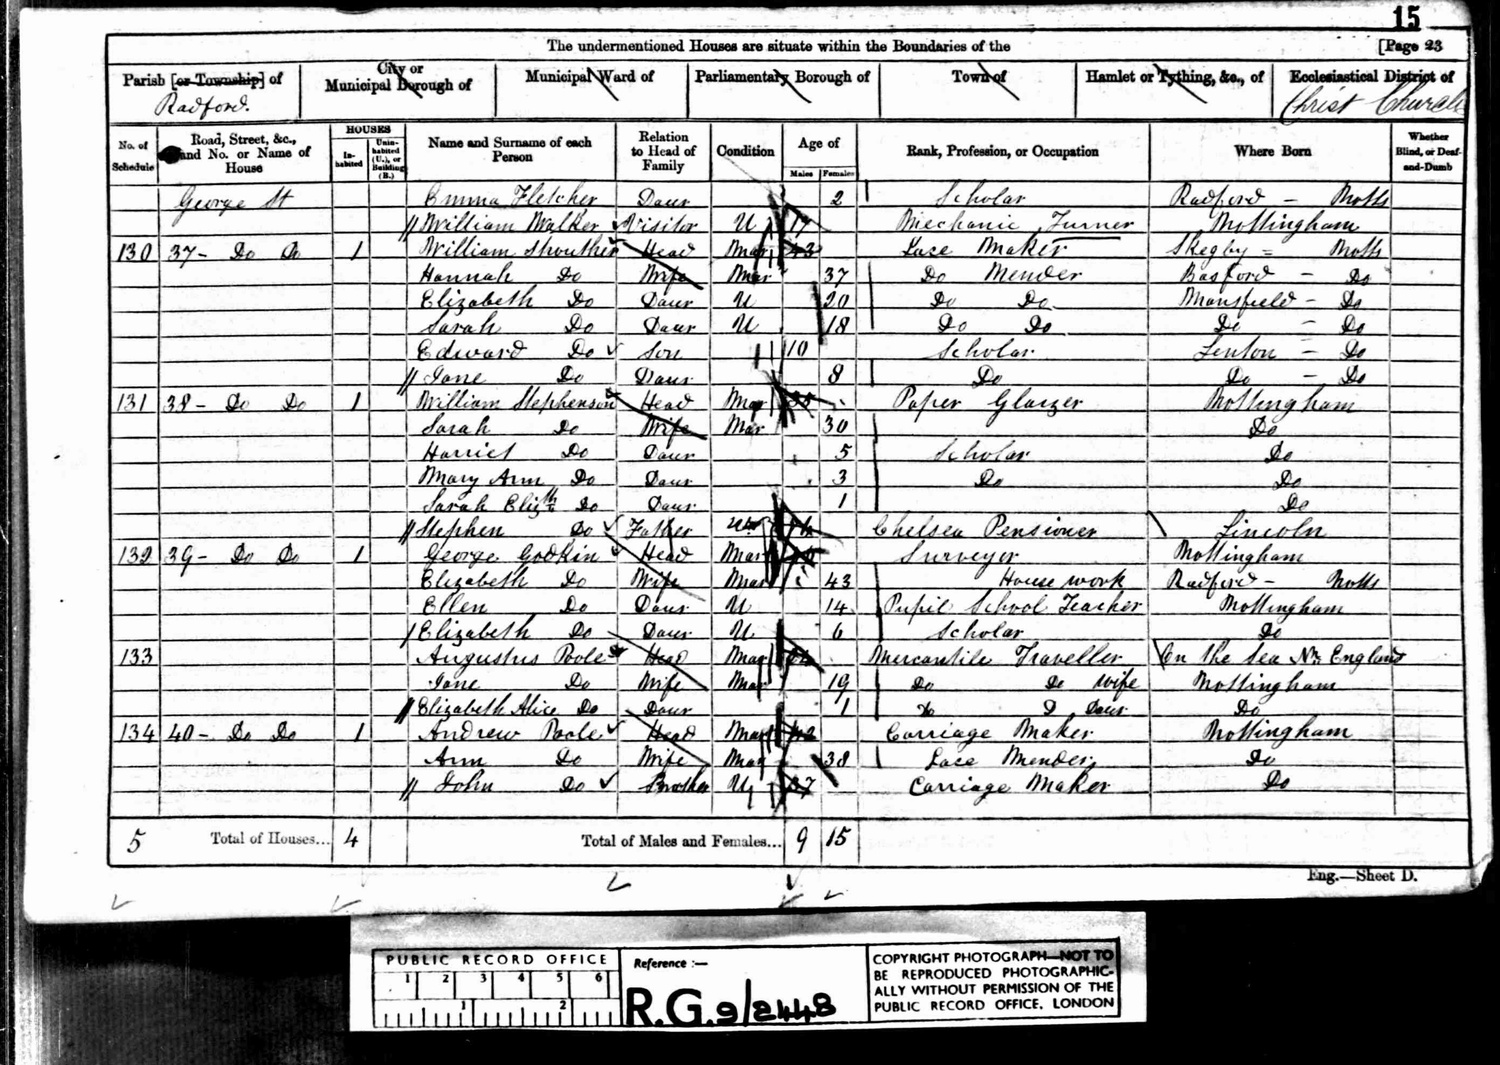 15
The undermentioned Houses are situate within the Boundaries of the [Page 23
Parish [or Township] of City or Municipal Borough of Municipal Ward of Parliamentary Borough of Town of Hamlet or Tything, &c., of Ecclesiastical District of
Radford. Christ Church
No. of Schedule Road, Street, &c., and No. or Name of House HOUSES Inhabited Uninhabited (U.), or Building (B.) Name and Surname of each Person Relation to Head of Family Condition Age of Males Females Rank, Profession, or Occupation Where Born Whether Blind, or Deaf-and-Dumb
George St Emma Fletcher Daur 2 Scholar Radford - Notts
William Walker Visitor U 17 Mechanic Turner Nottingham
130 37 - Do Do 1 William Head Mar 43 Lace Maker Skegby = Notts
Hannah Do Wife Mar 37 Do Mender Basford - Do
Elizabeth Do Daur U 20 Do Do Mansfield - Do
Sarah Do Daur U 18 Do Do Do - Do
Edward Do Son 10 Scholar Lenton - Do
Jane Do Daur 8 Do Do - Do
131 38 - Do Do 1 William Stephenson Head Mar Paper Glaizer Nottingham
Sarah Do Wife Mar 30 Do
Harriet Do Daur 5 Scholar Do
Mary Ann Do Daur 3 Do Do
Sarah Elizth Do Daur 1 Do
Stephen Do Father Chelsea Pensioner Lincoln
132 39 - Do Do 1 George Godkin Head Mar Surveyor Nottingham
Elizabeth Do Wife Mar 43 House work Radford - Notts
Ellen Do Daur U 14 Pupil School Teacher Nottingham
Elizabeth Do Daur U 6 Scholar Do
133 Augustus Poole Head Mar Mercantile Traveller On the Sea Nr England
Jane Do Wife Mar 19 Do Do wife Nottingham
Elizabeth Alice Do Daur 1 Do Do Daur Do
134 40 - Do Do 1 Andrew Poole Head Mar 42 Carriage Maker Nottingham
Ann Do Wife Mar 38 Lace Mender Do
John Do Brother U 37 Carriage Maker Do
5 Total of Houses... 4 Total of Males and Females... 9 15
Eng.—Sheet D.
PUBLIC RECORD OFFICE
1 2 3 4 5 6
1 2
Reference :—
R.G. 9/2448
COPYRIGHT PHOTOGRAPH—NOT TO
BE REPRODUCED PHOTOGRAPHIC-
ALLY WITHOUT PERMISSION OF THE
PUBLIC RECORD OFFICE, LONDON